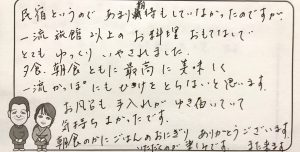 民宿というのであまり期待もしていなかったのですが、
一流旅館以上のお料理おもてなしで
とてもゆっくりいやされました。
夕食、朝食ともに最高に美味しく
一流かっぽにもひけをとらないと思います。
お風呂も手入れがゆき届いていて
気持ちよかったです。
朝食のかにごはんのおにぎりありがとうございます。
いただくのが楽しみです。また来ます